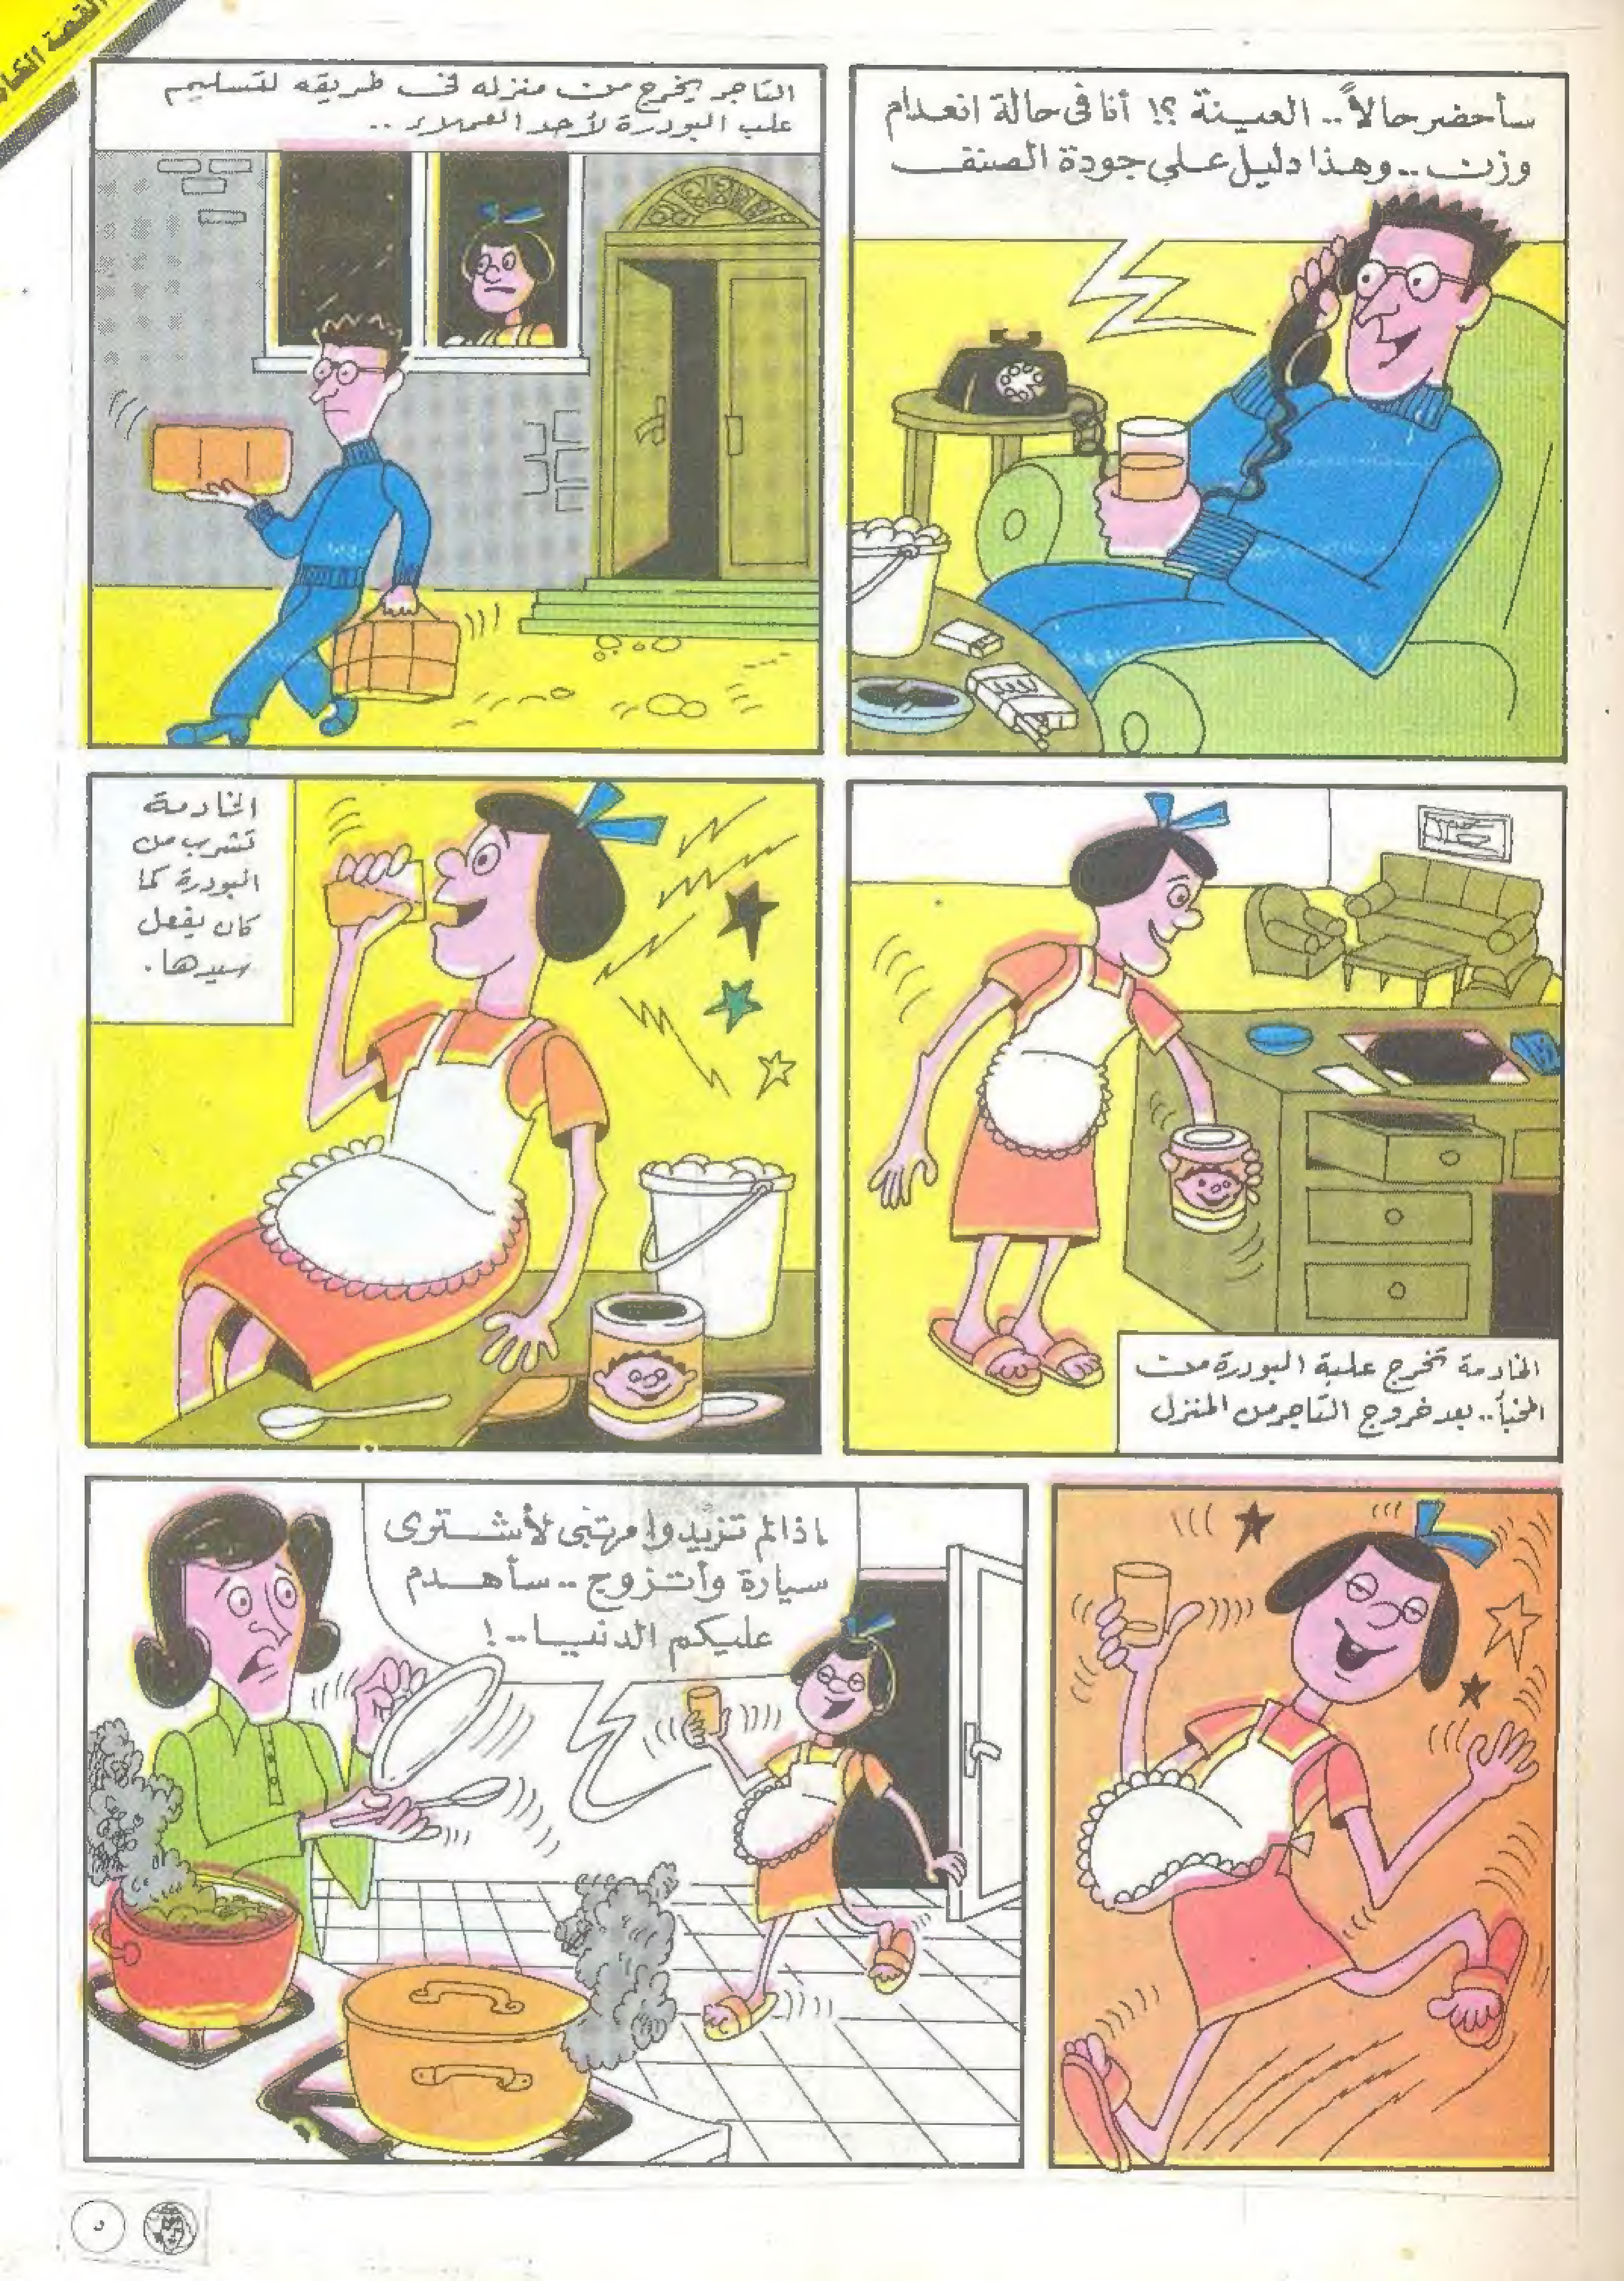 القصة
سأحضر حالاً.. العينة ؟! أنا فى حالة انعدام
وزن .. وهذا دليل على جودة الصنف
التاجر يخرج من منزله فى طريقه لتسليم
علب البودرة لأحد العملاء ..
الخادمة تخرج علبة البودرة من
المخبأ.. بعد خروج التاجر من المنزل
الخادمة
تشرب من
البودرة كما
كان يفعل
سيدها .
اذا لم تزيدوا مرتبى لأشترى
سيارة وأتزوج .. سأهدم
عليكم الدنيا..!
٥